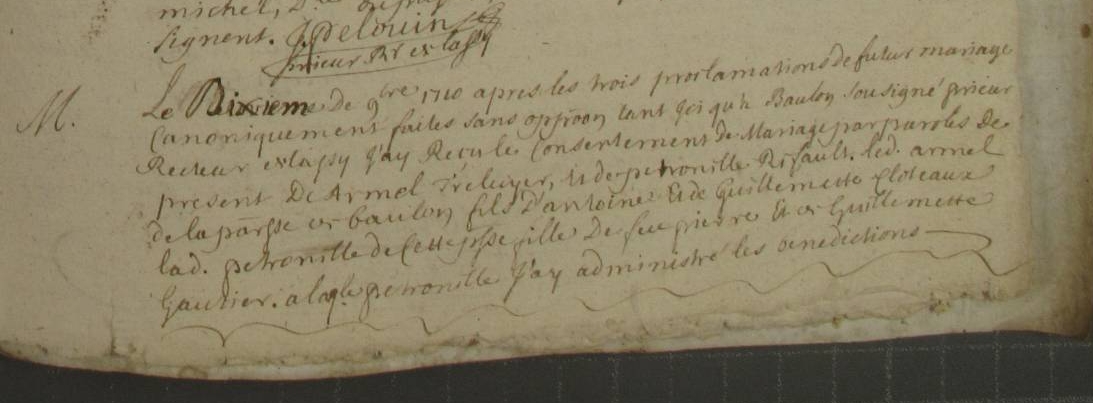 michel,
signent. J Delouin
prieur Rr
M.
Le Dixiem de 9bre 1710 apres les trois proclamations de futur mariage
Canoniquement faites sans oppoon tant Jci qu'a Baulon sousigné prieur
Recteur J'ay Receu le Consentement de Mariage par paroles de
present De Armel Treluyer, Et de petronille Rifault. led. armel
de la parsse de baulon fils D'antoine Et de Guillemette Cloteaux
lad. petronille de Cette psse fille De feu pierre Et de Guillemette
Gautier. a laqle petronille J'ay administré les benedictions